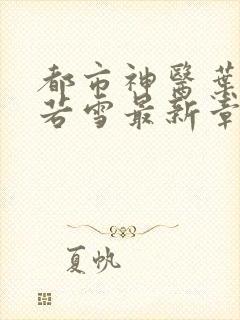 都市神醫葉
若雪最新章
夏帆